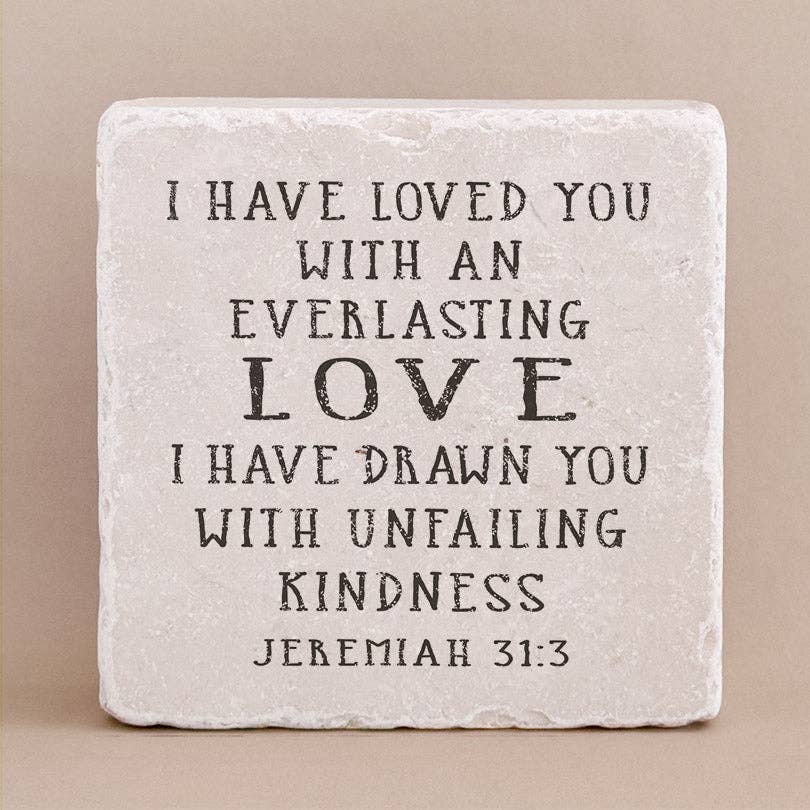 I HAVE LOVED YOU
WITH AN
EVERLASTING
LOVE
I HAVE DRAWN YOU
WITH UNFAILING
KINDNESS
JEREMIAH 31:3